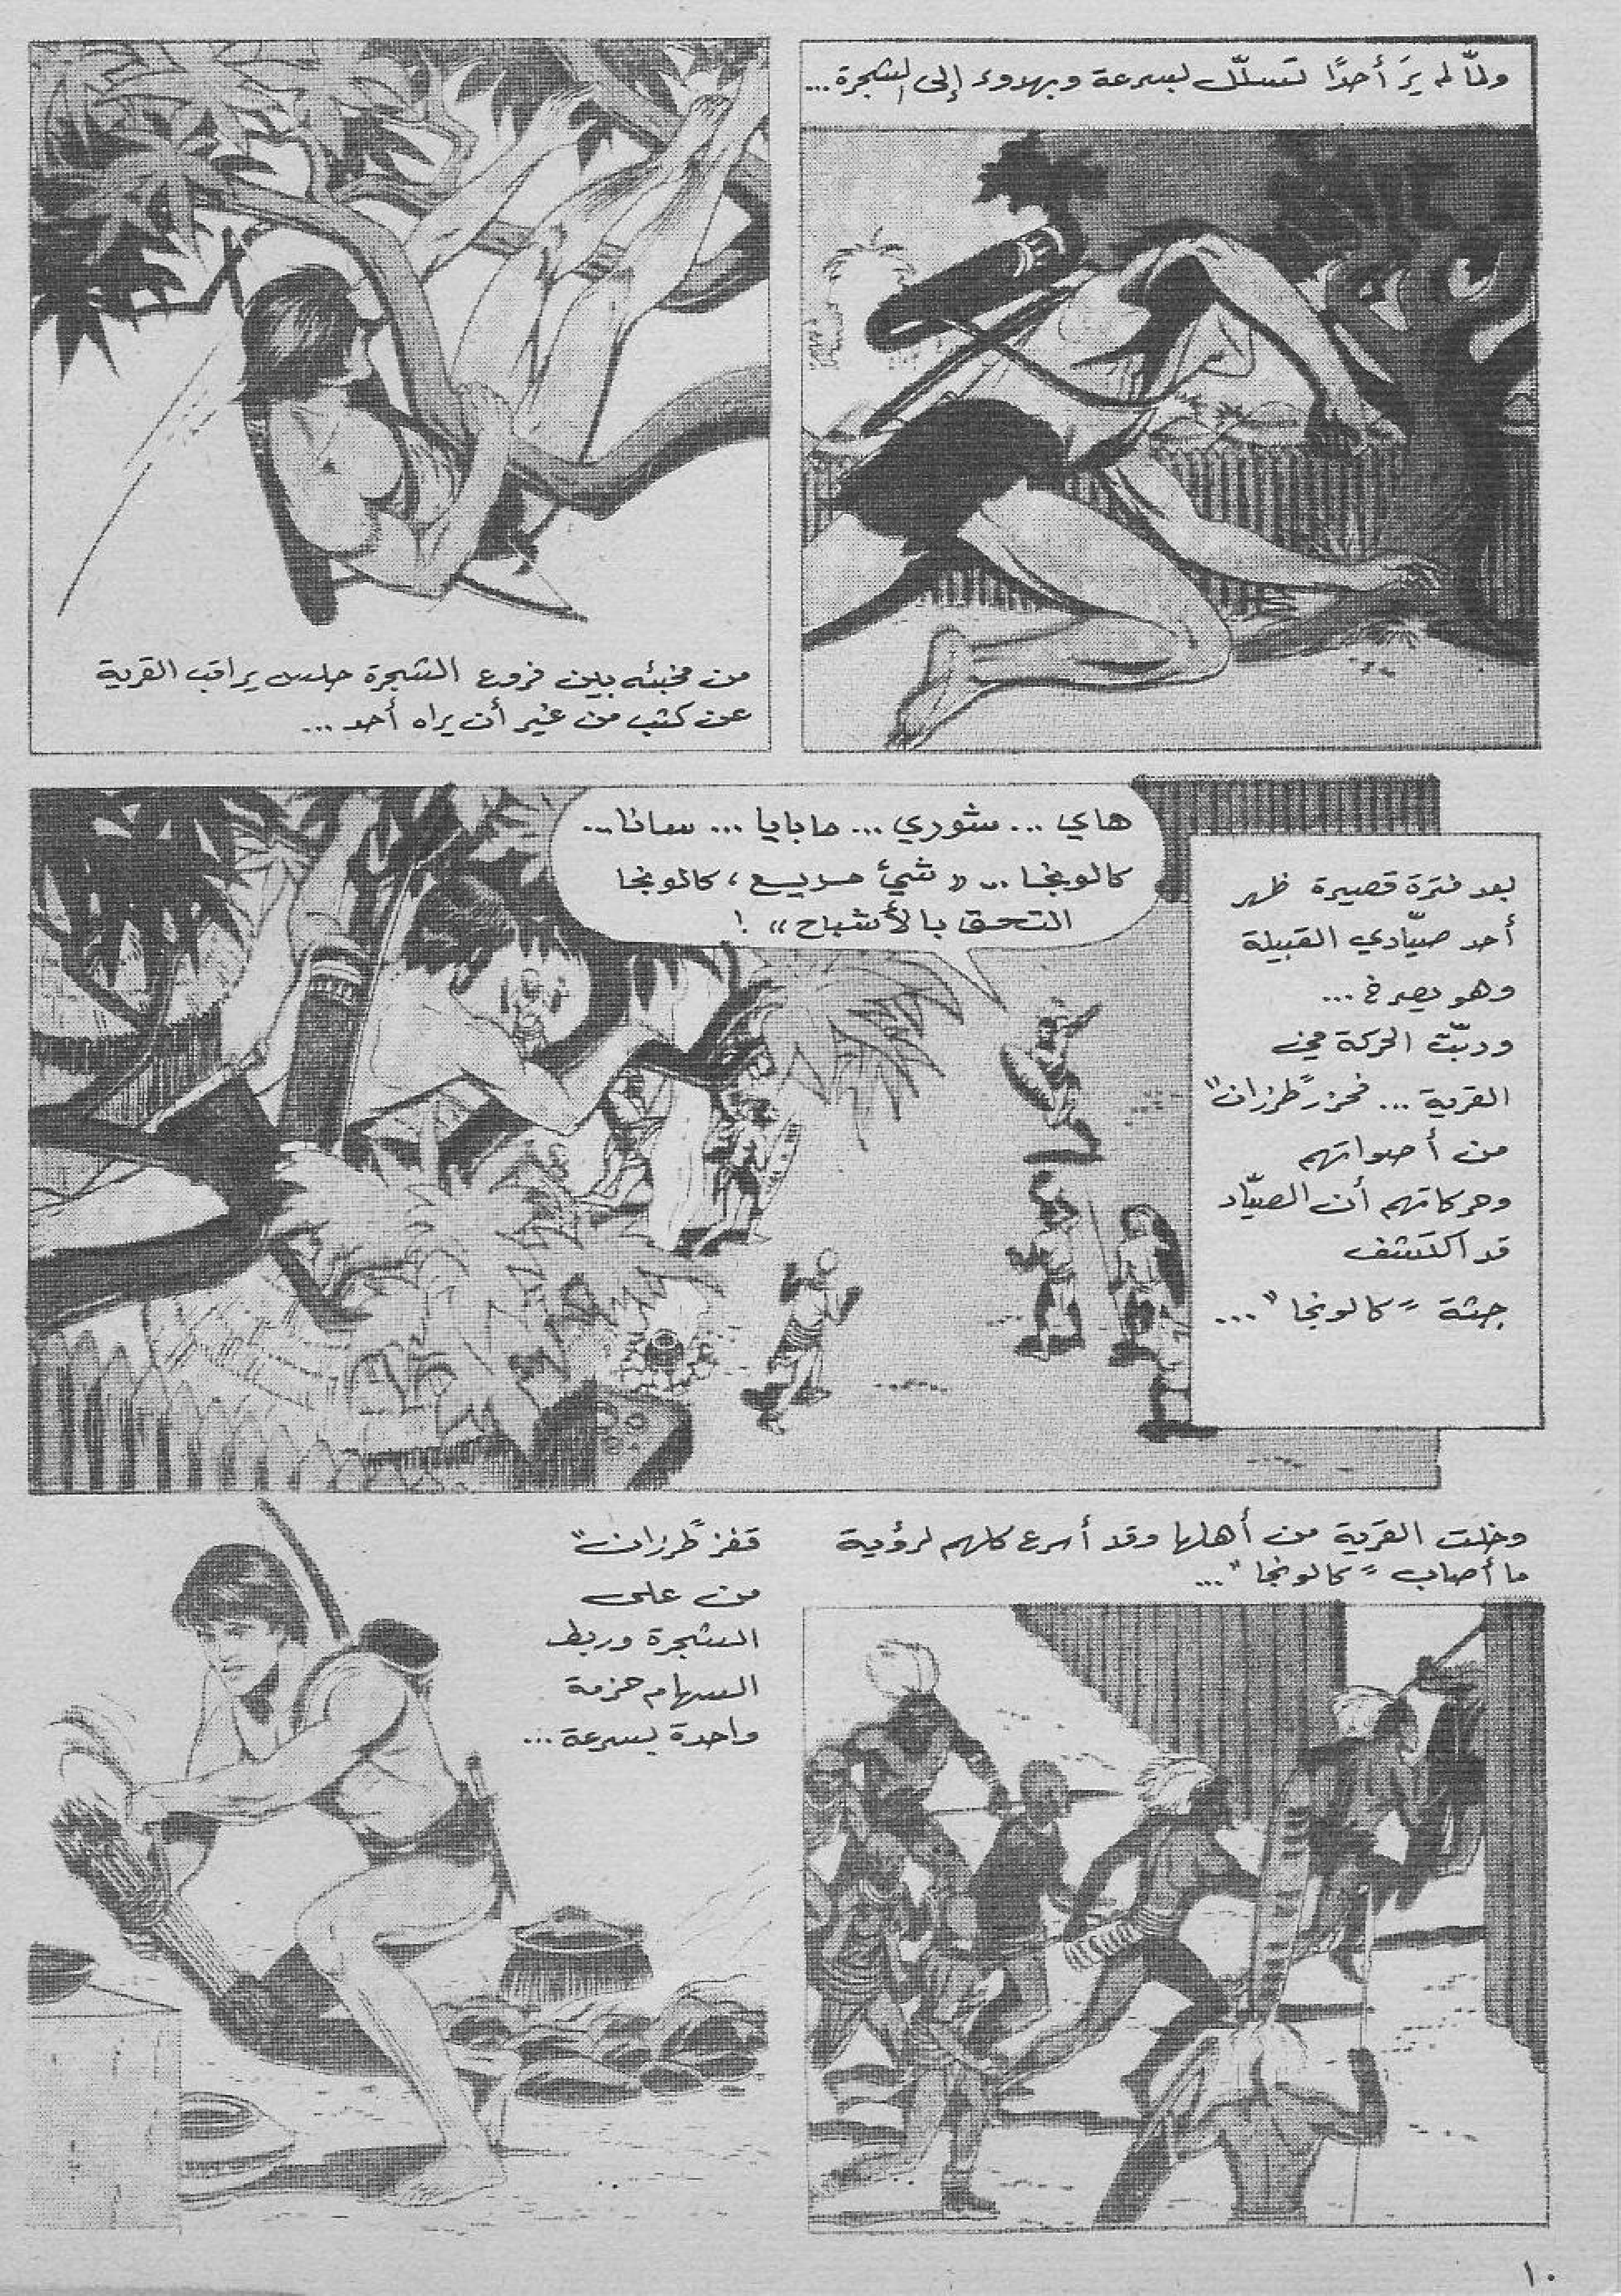 ولمّا لم يَرَ أحدًا تسلّل بسرعة وبهدوء إلى الشجرة...
من مخبئه بين فروع الشجرة جلس يراقب القرية
عن كثب من غير أن يراه أحد...
بعد فترة قصيرة ظهر
أحد صيّادي القبيلة
وهو يصرخ...
ودبّت الحركة في
القرية... فحزر "طرزان"
من أصواتهم
وحركاتهم أن الصيّاد
قد اكتشف
جثة "كالونجا"...
هاي... شوري... مابايا... سانا...
كالونجا... «شيء مريع، كالونجا
التحق بالأشباح» !
وخلت القرية من أهلها وقد أسرع كلهم لرؤية
ما أصاب "كالونجا"...
قفز "طرزان"
من على
الشجرة وربط
السهام حزمة
واحدة بسرعة...
١٠